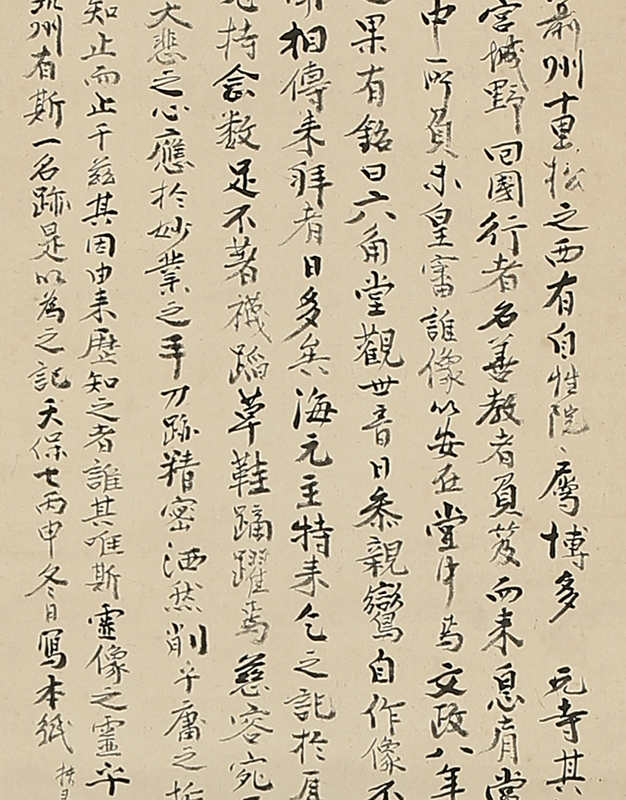 州十里松之西有自性院、属博多 元寺其
宮城野回國行者名善教者負笈而来息肩堂
中所負未皇審誰像以安在堂中焉文政八年
果有銘曰六角堂觀世音日参親鸞自作像不
相傳来拜者日多矣海元主特来乞之記於
持念数足不著襪蹈草鞋蹢躍焉慈容宛
大悲之心應於妙業之手刀跡精密洒然削乎庸之
知止而止于茲其因由来歴知之者誰其唯斯靈像之靈乎
州有斯一名跡是以為之記天保七丙申冬日寫本紙